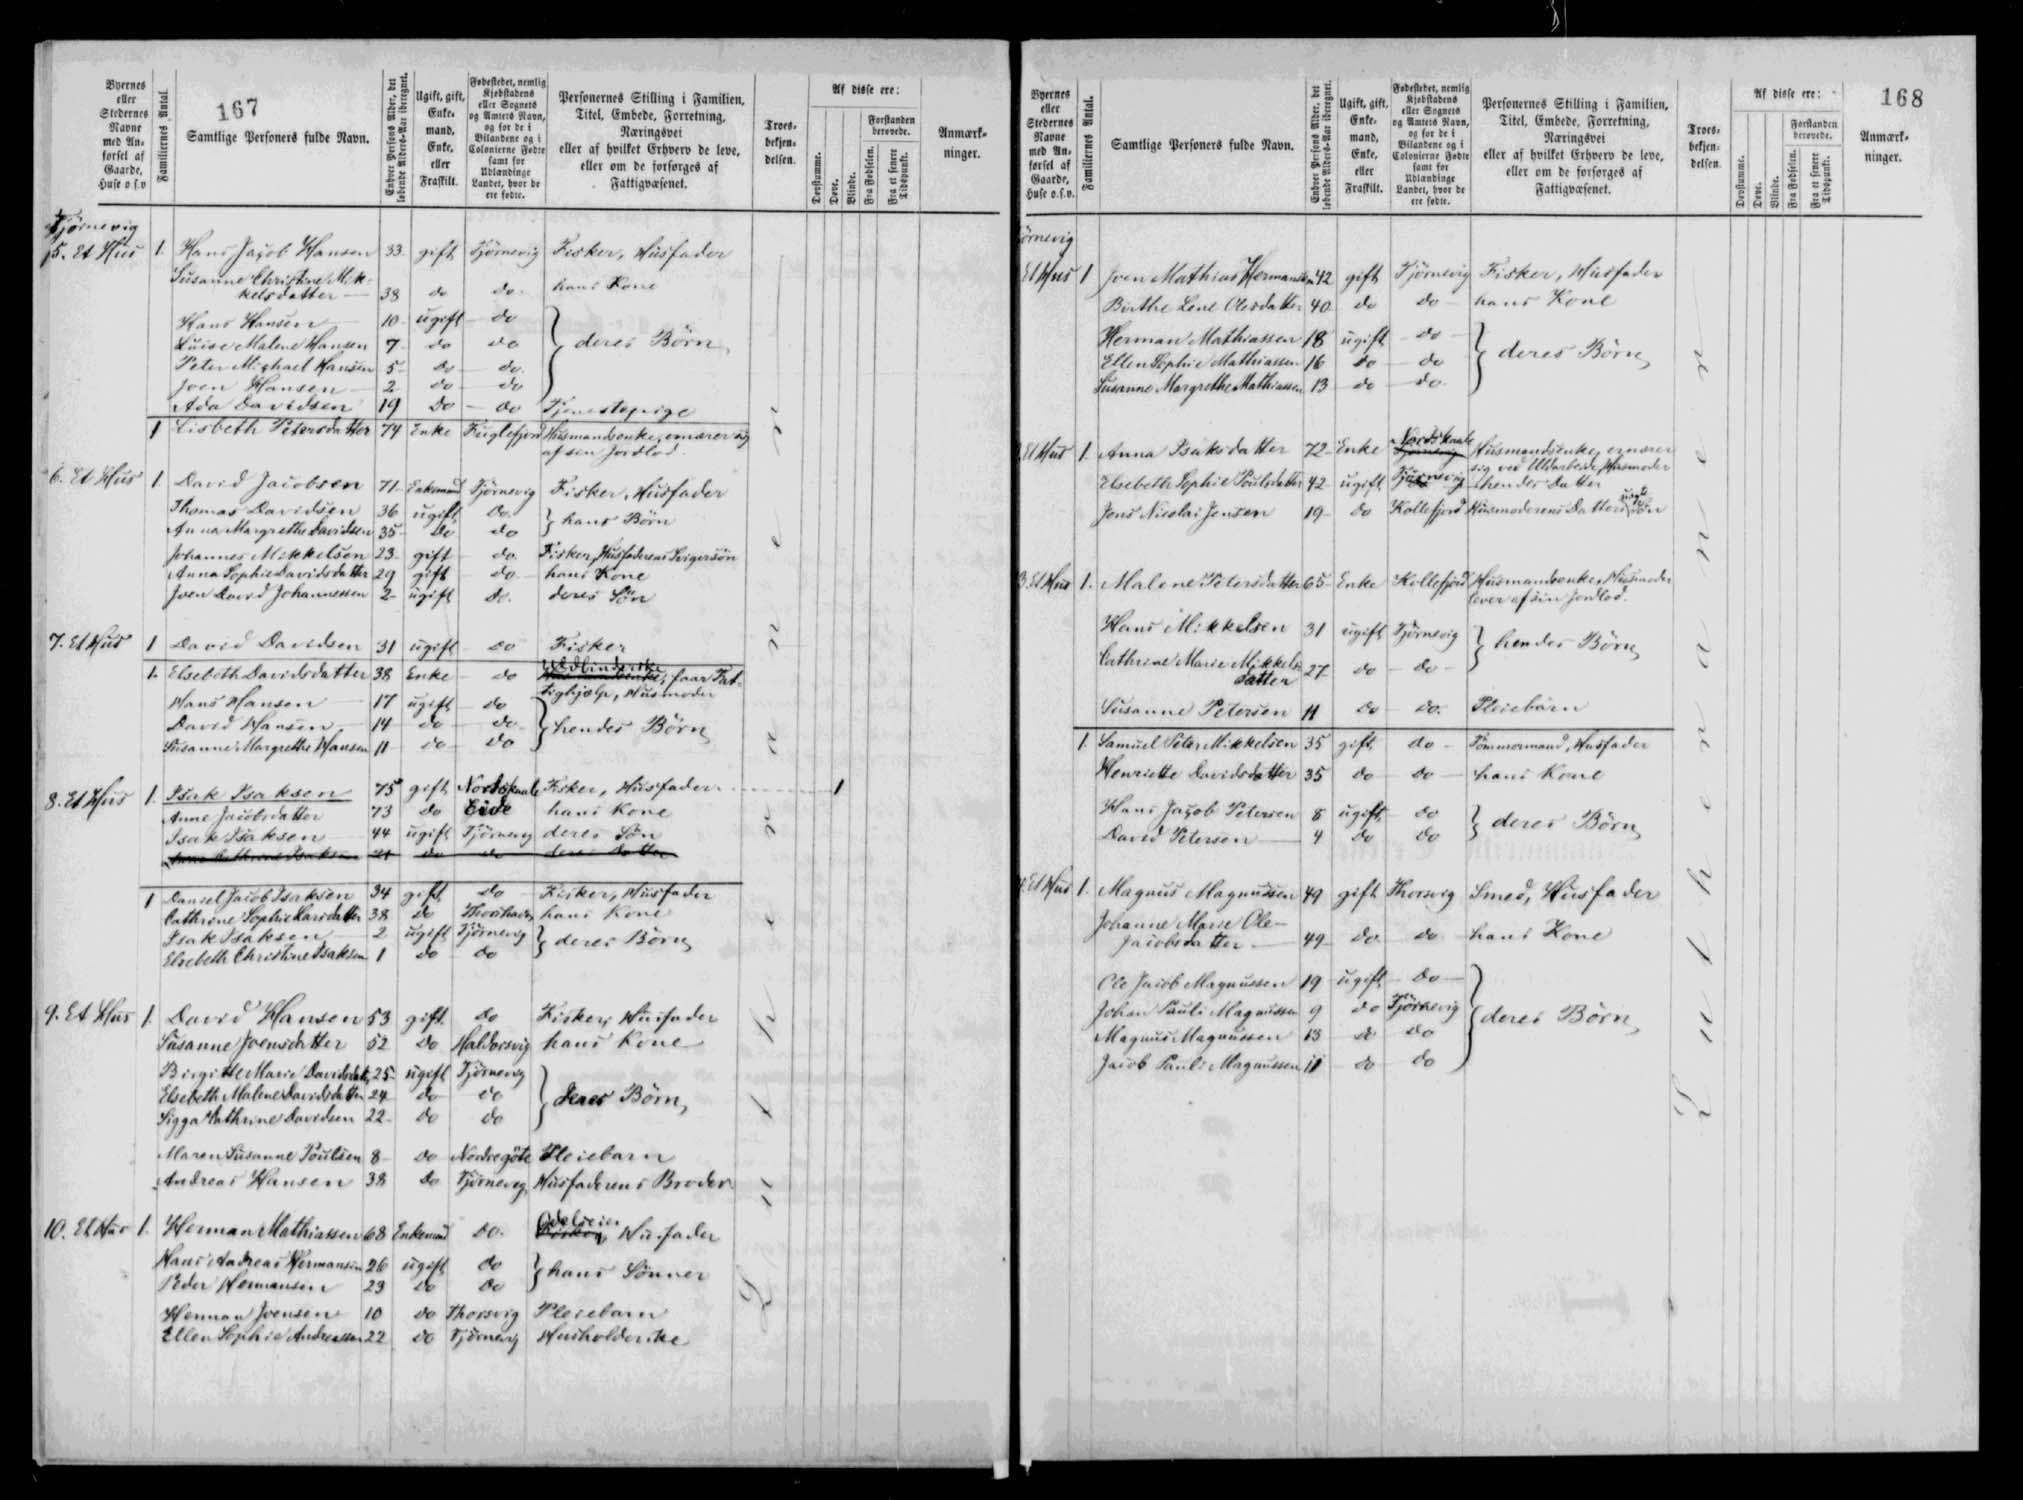 167
Byernes eller Stedernes Navne med Anførsel af Gaarde, Huse o.s.v
Familiernes Antal.
Samtlige Personers fulde Navn.
Enhver Persons Alder, det løbende Alders-Aar iberegnet.
Ugift, gift, Enkemand, Enke, eller Fraskilt.
Fødestedet, nemlig Kjøbstadens eller Sognets og Amtets Navn, og for de i Bilandene og i Colonierne Fødte samt for Udlændinge Landet, hvor de ere fødte.
Personernes Stilling i Familien, Titel, Embede, Forretning, Næringsvei eller af hvilket Erhverv de leve, eller om de forsørges af Fattigvæsenet.
Troesbekjendelsen.
Af disse ere:
Døvstumme.
Døve.
Blinde.
Forstanden berøvede.
Fra Fødselen.
Fra et senere Tidspunkt.
Anmærkninger.
Tjørnevig
5. Et Hus 1. Hans Jacob Hansen 33 gift Tjørnevig Fisker, Husfader
Susanne Christine Mik-
kelsdatter 38 do do hans Kone
Hans Hansen 10 ugift do
Luise Malene Hansen 7 do do } deres Børn
Peter Michael Hansen 5 do do
Joen Hansen 2 do do
Ada Davidsen 19 do do Tjenestepige
1 Lisbeth Petersdatter 74 Enke Fuglefjord Husmandsenke, ernærer sig
af sin Jordlod.
6. Et Hus 1. David Jacobsen 71 Enkemand Tjørnevig Fisker, Husfader
Thomas Davidsen 36 ugift do
Anna Margrethe Davidsen 35 do do } hans Børn
Johannes Mikkelsen 23 gift do Fisker, Husfaderens Svigersön
Anna Sophie Davidsdatter 29 gift do hans Kone
Joen David Johannessen 2 ugift do. deres Sön
7. Et Hus 1 David Davidsen 31 ugift do Fisker
1. Elsebeth Davidsdatter 38 Enke do faar Fat-
tighjælp, Husmoder
Hans Hansen 17 ugift do
David Hansen 14 do do } hendes Børn
Susanne Margrethe Hansen 11 do do
8. Et Hus 1. Isak Isaksen 75 gift Nordskaale Fisker, Husfader 1
Anne Jacobsdatter 73 do Eide hans Kone
Isak Isaksen 44 ugift Tjørnevig deres Sön
21 do do deres Datter
1 Daniel Jacob Isaksen 34 gift do Fisker, Husfader
Cathrine Sophie Larsdatter 38 do Thorshavn hans Kone
Isak Isaksen 2 ugift Tjørnevig } deres Børn
Elsebeth Christine Isaksen 1 do do
9. Et Hus 1. David Hansen 53 gift do Fisker, Husfader
Susanne Joensdatter 52 do Haldorsvig hans Kone
Birgitte Marie Davidsdatt. 25 ugift Tjørnevig
Elsebeth Malene Davidsdatter 24 do do } deres Børn
Sigga Cathrine Davidsen 22 do do
Maren Susanne Poulsen 8 do Nordregöte Pleiebarn
Andreas Hansen 38 do Tjørnevig Husfaderens Broder
10. Et Hus 1. Herman Mathiassen 68 Enkemand do. Odelseier Husfader
Hans Andreas Hermansen 26 ugift do } hans Sönner
Peder Hermansen 23 do do
Herman Joensen 10 do Thorsvig Pleiebarn
Ellen Sophie Andreassen 22 do Tjørnevig Husholderske
Lutheranere
168
Byernes eller Stedernes Navne med Anførsel af Gaarde, Huse o.s.v.
Familiernes Antal.
Samtlige Personers fulde Navn.
Enhver Persons Alder, det løbende Alders-Aar iberegnet.
Ugift, gift, Enkemand, Enke, eller Fraskilt.
Fødestedet, nemlig Kjøbstadens eller Sognets og Amtets Navn, og for de i Bilandene og i Colonierne Fødte samt for Udlændinge Landet, hvor de ere fødte.
Personernes Stilling i Familien, Titel, Embede, Forretning, Næringsvei eller af hvilket Erhverv de leve, eller om de forsørges af Fattigvæsenet.
Troesbekjendelsen.
Af disse ere:
Døvstumme.
Døve.
Blinde.
Forstanden berøvede.
Fra Fødselen.
Fra et senere Tidspunkt.
Anmærkninger.
ørnevig
Et Hus 1 Joen Mathias Hermansen 42 gift Tjørnevig Fisker, Husfader
Birthe Lene Olesdatter 40 do do hans Kone
Herman Mathiassen 18 ugift do
Ellen Sophie Mathiassen 16 do do } deres Børn
Susanne Margrethe Mathiassen 13 do do
Et Hus 1. Anna Isaksdatter 72 Enke Nordskaale Husmandsenke, ernærer
sig ved Uldarbeide, Husmoder
Elsebeth Sophie Poulsdatter 42 ugift Tjørnevig hendes Datter
Jens Nicolai Jensen 19 do Kollefjord Husmoderens Datters uægte Sön
3. Et Hus 1. Malene Petersdatter 65 Enke Kollefjord Husmandsenke, Husmoder
lever af sin Jordlod.
Hans Mikkelsen 31 ugift Tjørnevig } hendes Børn
Cathrine Marie Mikkels-
datter 27 do do
Susanne Petersen 11 do do. Pleiebarn
1. Samuel Peter Mikkelsen 35 gift do Tömmermand, Husfader
Henriette Davidsdatter 35 do do hans Kone
Hans Jacob Petersen 8 ugift do } deres Børn
David Petersen 4 do do
4. Et Hus 1. Magnus Magnussen 49 gift Thorsvig Smed, Husfader
Johanne Marie Ole-
Jacobsdatter 49 do do hans Kone
Ole Jacob Magnussen 19 ugift do
Johan Pauli Magnussen 9 do Tjørnevig } deres Børn
Magnus Magnussen 13 do do
Jacob Pauli Magnussen 11 do do
Lutheranere